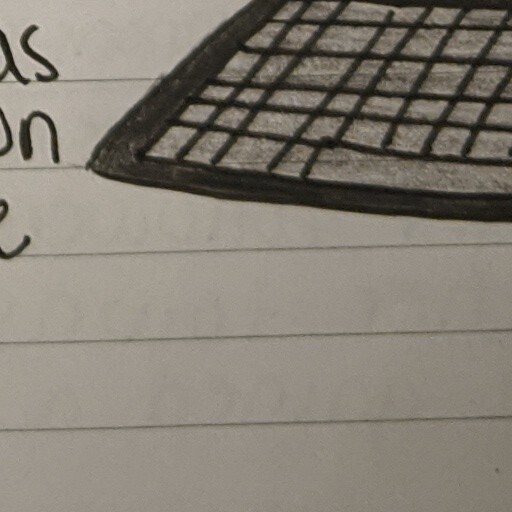 as
on
e